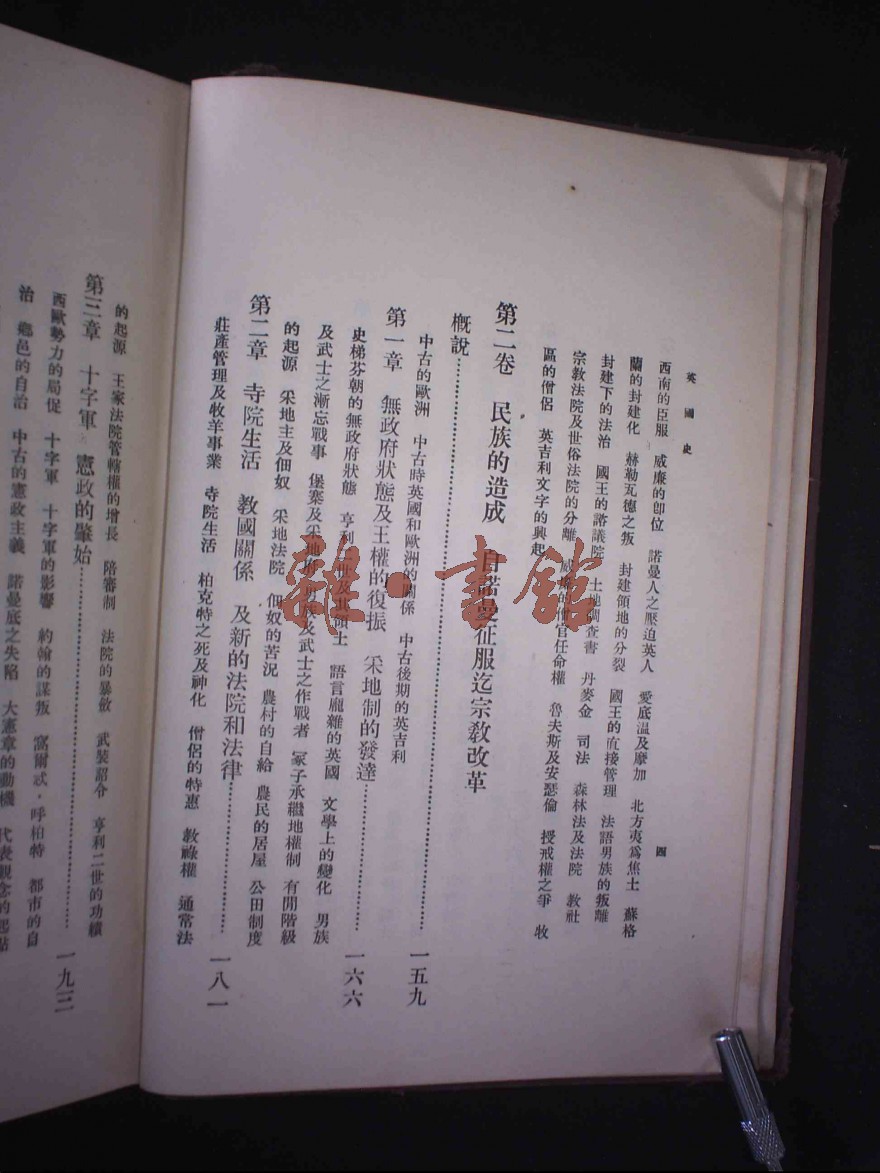 英國史
四
西南的臣服 威廉的卽位 諾曼人之壓迫英人 愛底溫及摩加 北方夷爲焦土 蘇格
蘭的封建化 赫勒瓦德之叛 封建領地的分裂 國王的直接管理 法語男族的叛離
封建下的法治 國王的諮議院 土地調查書 丹麥金 司法 森林法及法院 教社
宗教法院及世俗法院的分離 威廉的僧官任命權 魯夫斯及安瑟倫 授戒權之爭 牧
區的僧侶 英吉利文字的興起
第二卷 民族的造成 自諾曼征服迄宗教改革
槪說 一五九
中古的歐洲 中古時英國和歐洲的關係 中古後期的英吉利
第一章 無政府狀態及王權的復振 采地制的發達 一六六
史梯芬朝的無政府狀態 亨利二世及其領土 語言龐雜的英國 文學上的變化 男族
及武士之漸忘戰事 堡寨及采地府 男族及武士之作戰者 冢子承繼地權制 有閒階級
的起源 采地主及佃奴 采地法院 佃奴的苦況 農村的自給 農民的居屋 公田制度
莊產管理及牧羊事業 寺院生活 柏克特之死及神化 僧侶的特惠 教祿權 通常法
第二章 寺院生活 教國關係 及新的法院和法律 一八一
的起源 王家法院管轄權的增長 陪審制 法院的暴斂 武裝詔令 亨利二世的功績
第三章 十字軍 憲政的肇始 一九三
西歐勢力的局促 十字軍 十字軍的影響 約翰的謀叛 窩爾忒·呼柏特 都市的自
治 鄉邑的自治 中古的憲政主義 諾曼底之失陷 大憲章的動機 代表觀念的起點
雜·書館